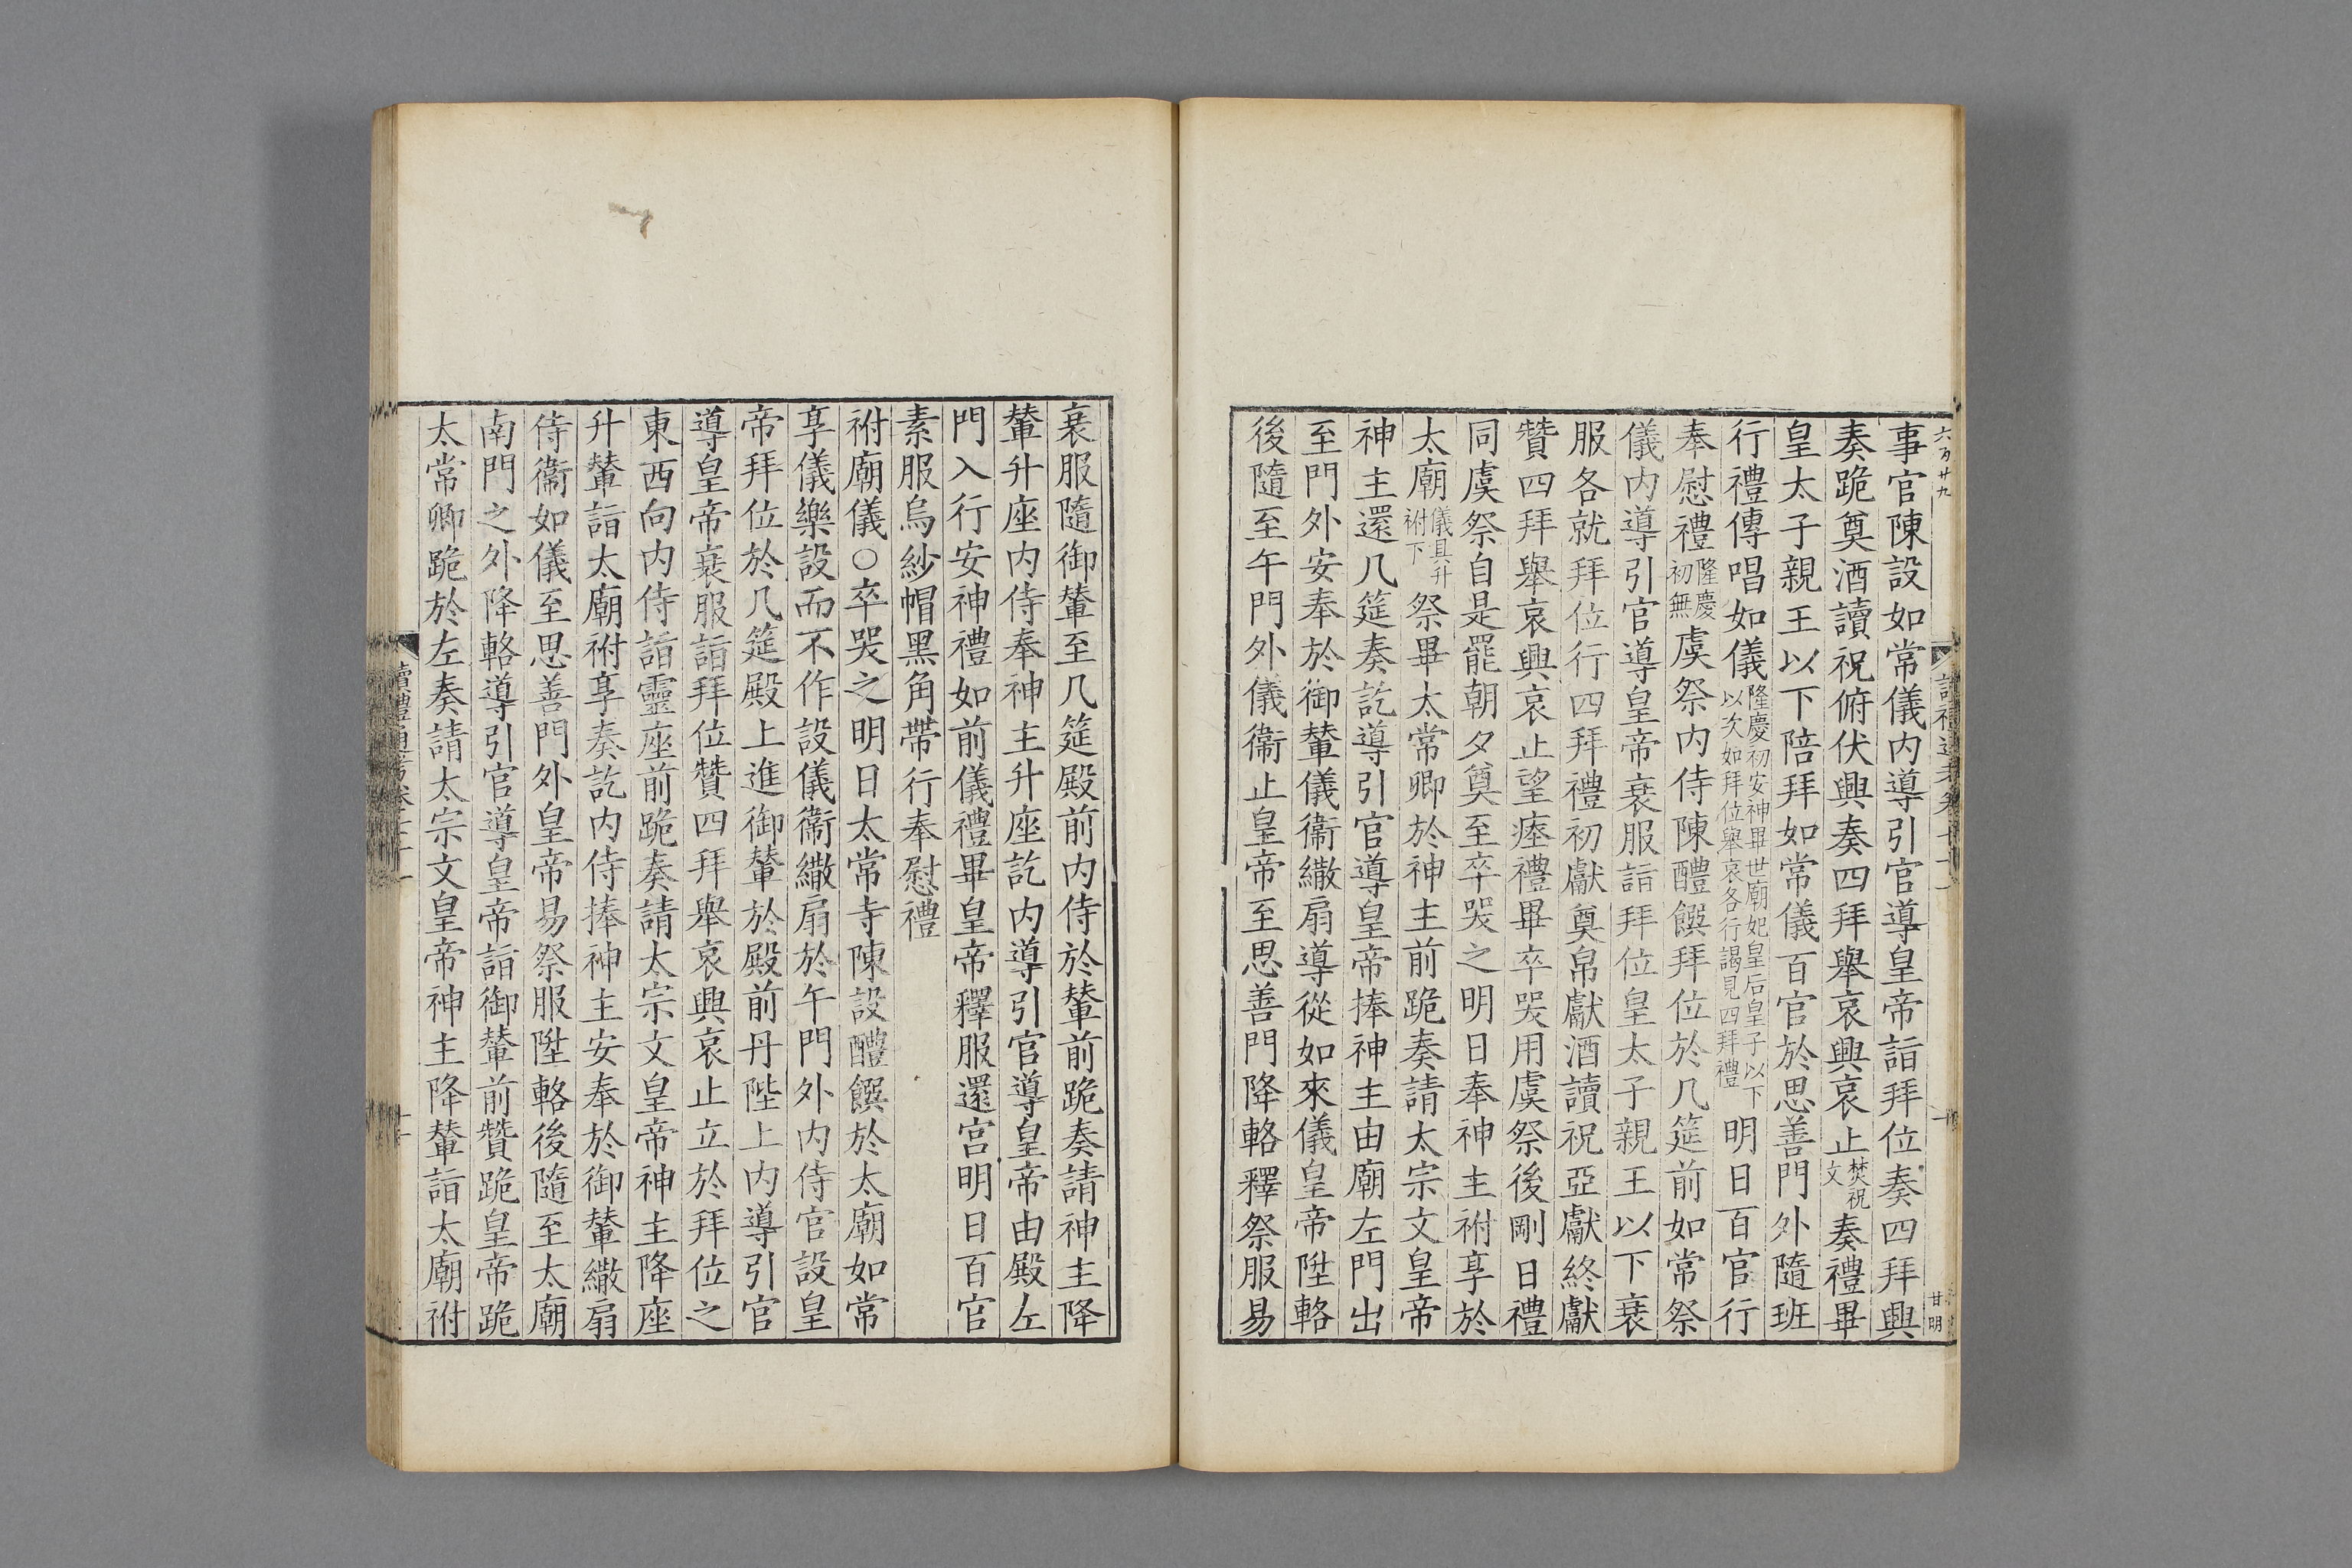 六百廿九
事官陳設如常儀內導引官導皇帝詣拜位奏四拜興
奏跪奠酒讀祝俯伏興奏四拜舉哀興哀止焚祝文奏禮畢
皇太子親王以下陪拜如常儀百官於思善門外隨班
行禮傳唱如儀隆慶初安神畢世廟妃皇后皇子以下以次如拜位舉哀各行謁見四拜禮明日百官行
奉慰禮隆慶初無虞祭內侍陳醴饌拜位於几筵前如常祭
儀內導引官導皇帝衰服詣拜位皇太子親王以下衰
服各就拜位行四拜禮初獻奠帛獻酒讀祝亞獻終獻
贊四拜舉哀興哀止望瘞禮畢卒哭用虞祭後剛日禮
同虞祭自是罷朝夕奠至卒哭之明日奉神主祔享於
太廟儀具升祔下祭畢太常卿於神主前跪奏請太宗文皇帝
神主還几筵奏訖導引官導皇帝捧神主由廟左門出
至門外安奉於御輦儀衞繖扇導從如來儀皇帝陞輅
後隨至午門外儀衞止皇帝至思善門降輅釋祭服易
甘明
衰服隨御輦至几筵殿前內侍於輦前跪奏請神主降
輦升座內侍奉神主升座訖內導引官導皇帝由殿左
門入行安神禮如前儀禮畢皇帝釋服還宮明日百官
素服烏紗帽黑角帶行奉慰禮
祔廟儀○卒哭之明日太常寺陳設醴饌於太廟如常
享儀樂設而不作設儀衞繖扇於午門外內侍官設皇
帝拜位於几筵殿上進御輦於殿前丹陛上內導引官
導皇帝衰服詣拜位贊四拜舉哀興哀止立於拜位之
東西向內侍詣靈座前跪奏請太宗文皇帝神主降座
升輦詣太廟祔享奏訖內侍捧神主安奉於御輦繖扇
侍衞如儀至思善門外皇帝易祭服陞輅後隨至太廟
南門之外降輅導引官導皇帝詣御輦前贊跪皇帝跪
太常卿跪於左奏請太宗文皇帝神主降輦詣太廟祔